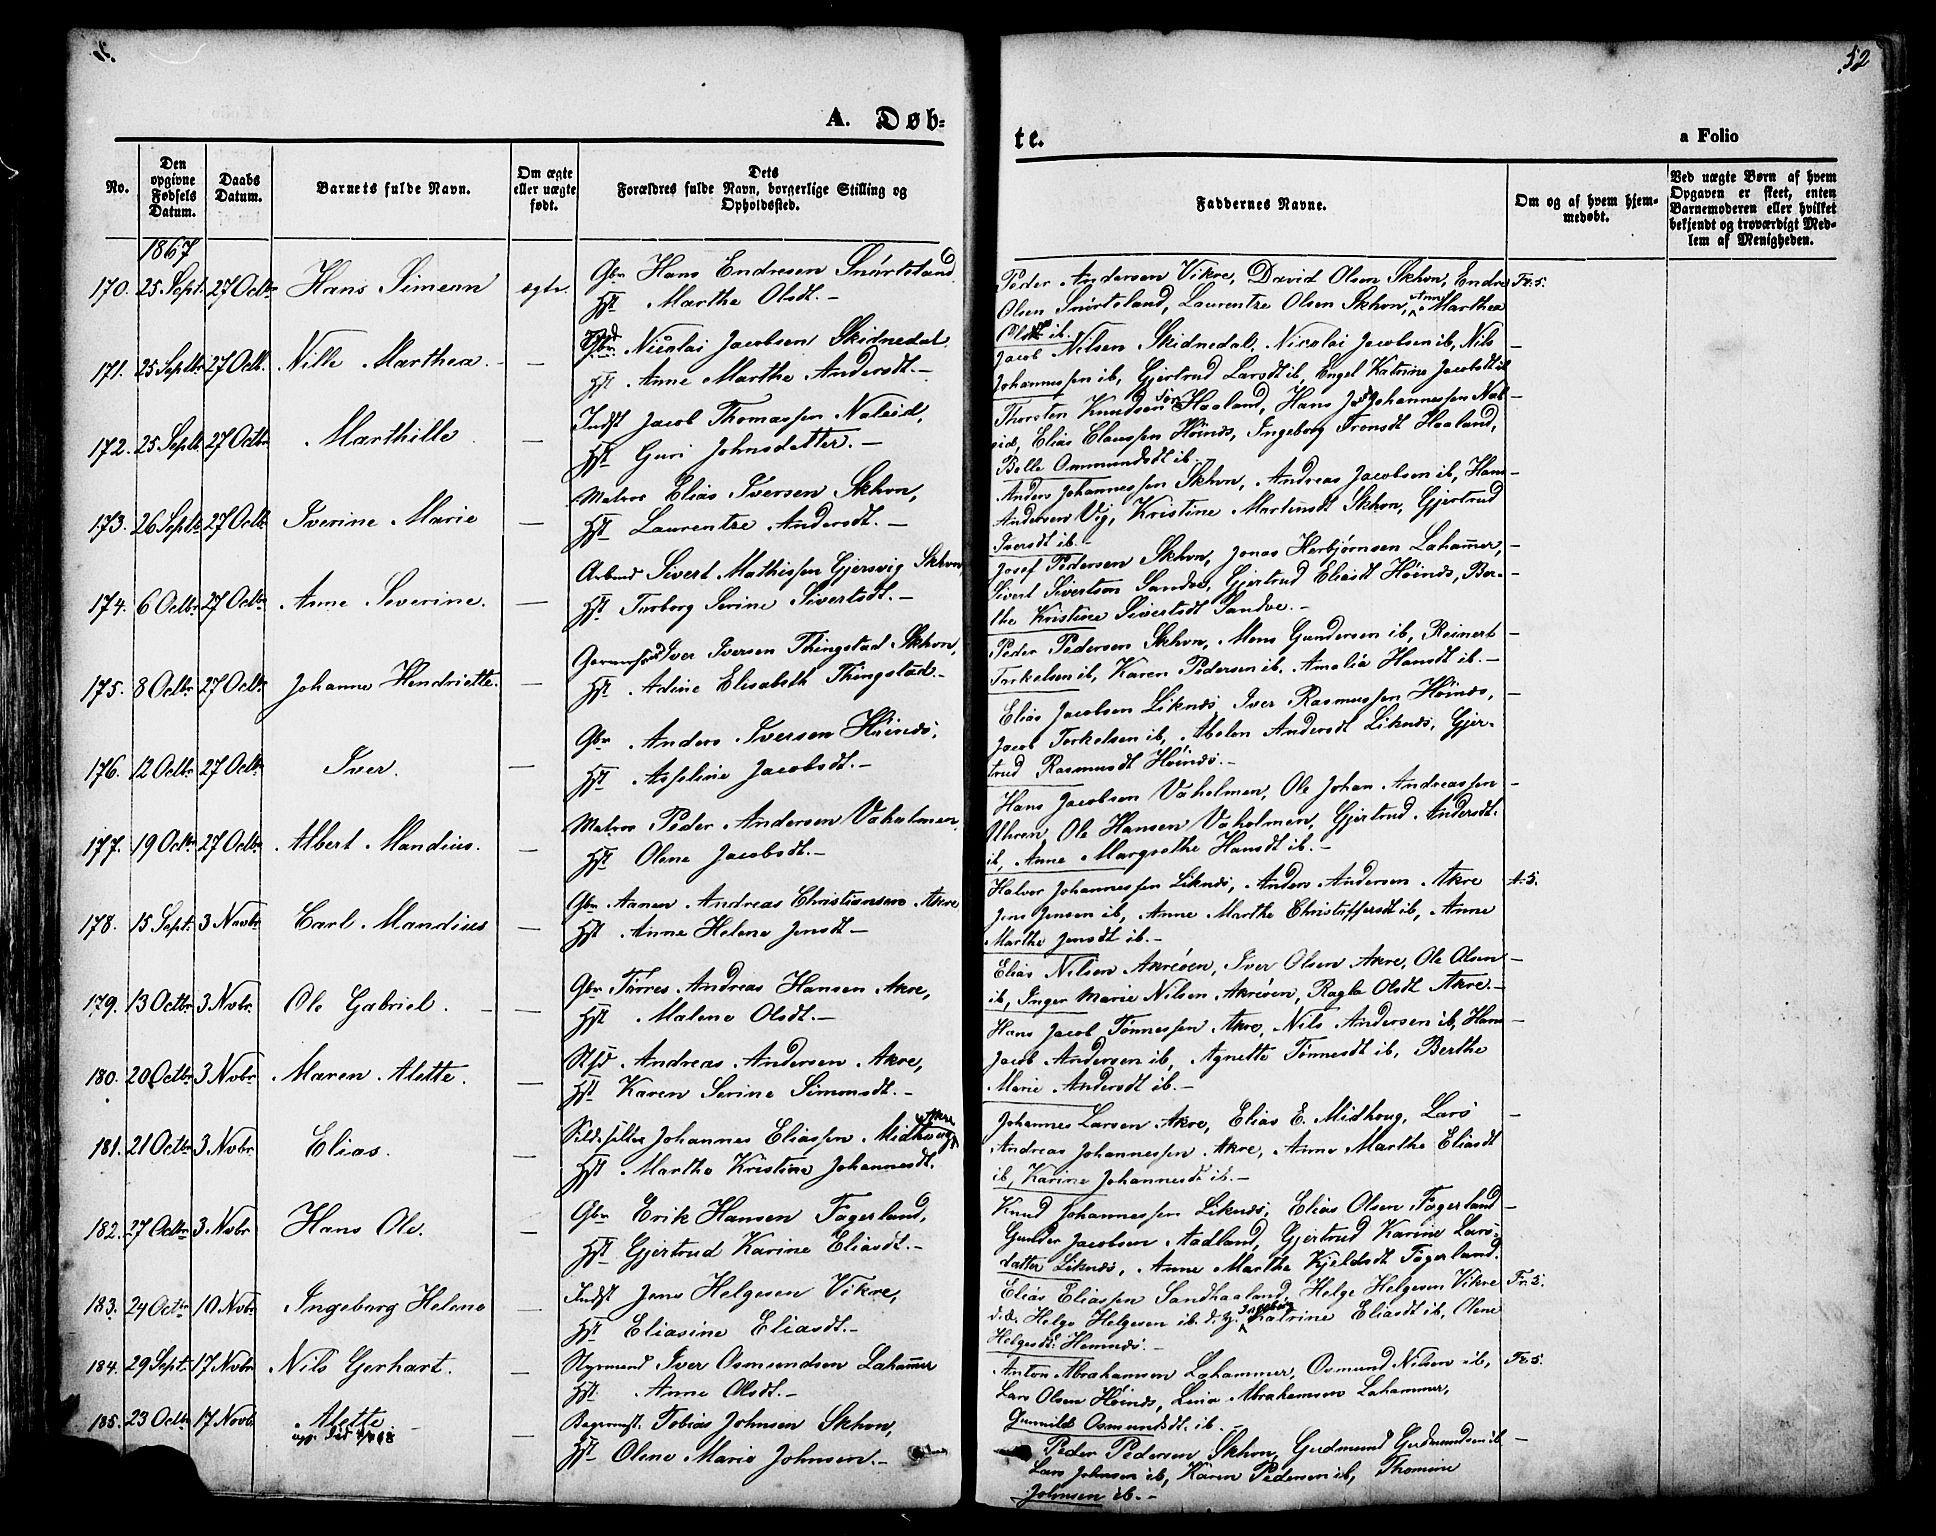 52
A. Døb-
te.
a Folio
No.
Den opgivne Fødsels Datum.
Daabs Datum.
Barnets fulde Navn.
Om ægte eller uægte født.
Dets Forældres fulde Navn, borgerlige Stilling og Opholdssted.
Faddernes Navne.
Om og af hvem hjemmedøbt.
Ved uægte Børn af hvem Opgaven er skeet, enten Barnemoderen eller hvilket bekjendt og troværdigt Medlem af Menigheden.
1867
170. 25 Sept. 27 Octbr Hans Simean ægte. Gbr Hans Endresen Snørteland
Hst Marthe Olsdt.-
Peder Andersen Vikre, David Olsen Skhvn, Endre Fr. S.
Olsen Snørteland, Laurentze Olsen Skhvn, Anne Marthea
Olsen ib.
171. 25 Septbr 27 Octb. Nille Marthea. - Nicolai Jacobsen Skidnedal
Hst Anne Marthe Andersdt.-
Jacob Nilsen Skidnedal, Nicolai Jacobsen ib, Nils -
Johannessen ib, Gjertrud Larsdt ib, Engel Katrine Jacobsdt ib
172. 25 Septb 27 Octbr Marthille - Indst Jacob Thomassen Naleid,
Hst Guri Johnsdatter.-
Thorsten Knudsen Haaland, Hans Johannessen Nal- -
eid, Elias Claussen Høines, Ingeborg Tronsdt Haaland,
Bolle Ommundsdt ib.
173. 26 Septbr 27 Octb Iverine Marie - Matros Elias Iversen Skhvn,
Hst Laurentze Andersdt.-
Anders Johannessen Skhvn, Andreas Jacobsen ib, Hans -
Andersen Vig, Kristine Martinsdt Skhvn, Gjertrud
Iversdt ib.-
174. 6 Octbr 27 Octbr Anne Severine. - Arbmd Sivert Mathissen Gjersvig Skhvn,
Hst Torborg Serine Sivertsdt.-
Josef Pedersen Skhvn, Jonas Herbjørnsen Lahamer, -
Sivert Sivertsen Sandve, Gjertrud Eliasdt Høines, Ber- -
the Kristine Sivertsdt Sandve.-
175. 8 Octbr 27 Octbr Johanne Hendriette. - Iver Iversen Thingstad Skhvn,
Hst Adine Elisabeth Thingstad.-
Peder Pedersen Skhvn, Mons Gundersen ib, Reinert -
Torkelsen ib, Karen Pedersen ib, Amalia Hansdt ib.-
176. 12 Octbr 27 Octbr Iver. - Gbr Anders Iversen Høines,
Hst Asseline Jacobsdt.-
Elias Jacobsen Liknes, Iver Rasmussen Høines, -
Jacob Torkelsen ib, Abelon Andersdt Liknes, Gjer-
trud Rasmusdt Høines.-
177. 19 Octbr 27 Octbr Albert Mandius. - Matros Peder Andersen Vaholmen,
Hst Olene Jacobsdt.-
Hans Jacobsen Vaholmen, Ole Johan Andreassen -
Uhren, Ole Hansen Vaholmen, Gjertrud Andersdt.
ib, Anne Margrethe Hansdt ib.-
178. 15 Sept. 3 Novbr Carl Mandius - Gbr Aanen Andreas Christiansen Akre
Hst Anne Helene Jensdt-
Halvor Johannessen Liknes, Anders Andersen Akre A. S.
Jens Jensen ib, Anne Marthe Christoffersdt ib, Anne
Marthe Jensdt ib.-
179. 13 Octbr 3 Novbr. Ole Gabriel. - Gbr Tørres Andreas Hansen Akre,
Hst Malene Olsdt.-
Elias Nilsen Akreøen, Iver Olsen Akre, Ole Olsen -
ib, Inger Marie Nilsen Akreøen, Ragla Olsdt Akre.-
180. 20 Octbr 3 Novbr Maren Alette. - Andreas Andersen Akre,
Hst Karen Serine Simonsdt.-
Hans Jacob Tønnessen Akre, Nils Andersen ib, Hans -
Jacob Andersen ib, Agnette Tønnesdt ib, Berthe
Marie Andersdt ib.-
181. 21 Octbr 3 Novbr. Elias. - Sildesalter Johannes Eliassen Midhoug Akre
Hst Marthe Kristine Johannesdt.
Johannes Larsen Akre, Elias E. Midhoug, Lars -
Andreas Johannessen Akre, Anne Marthe Eliasdt
ib, Karine Johannesdt ib.-
182. 27 Octbr 3 Novbr Hans Ole. - Gbr Erik Hansen Fagerland,
Hst Gjertrud Karine Eliasdt.-
Knud Johannessen Liknes, Elias Olsen Fagerland -
Gunder Jacobsen Aadland, Gjertrud Karine Lars-
datter Liknes, Anne Marthe Kjeldsdt Fagerland.
183. 24 Octbr 10 Novbr Ingeborg Helene - Indst Jens Helgesen Vikre,
Hst Eliasine Eliasdt.-
Elias Eliassen Sandhaaland, Helge Helgesen Vikre Fr. S.
d.æ. Helge Helgesen ib. d.y. Ingeborg Katrine Eliasdt ib, Olene
Helgesdt Hemnes.-
184. 29 Sept. 17 Novbr Nils Gerhart. - Styrmand Iver Osmundsen Lahamer
Hst. Anne Olsdt.-
Anton Abrahamsen Lahammer, Osmund Nilsen ib, Fr. S.
Lars Olsen Høines, Lina Abrahamsen Lahammer,
Gunnilde Osmundsdt. ib.-
185. 23 Octbr 17 Novb. Alette - Tobias Johnsen Skhvn,
Hst Olene Marie Johnsen.-
Peder Pedersen Skhvn, Gudmund Gudmundsen ib -
Lars Johnsen ib, Karen Pedersen ib, Thomine
Johnsen ib.-